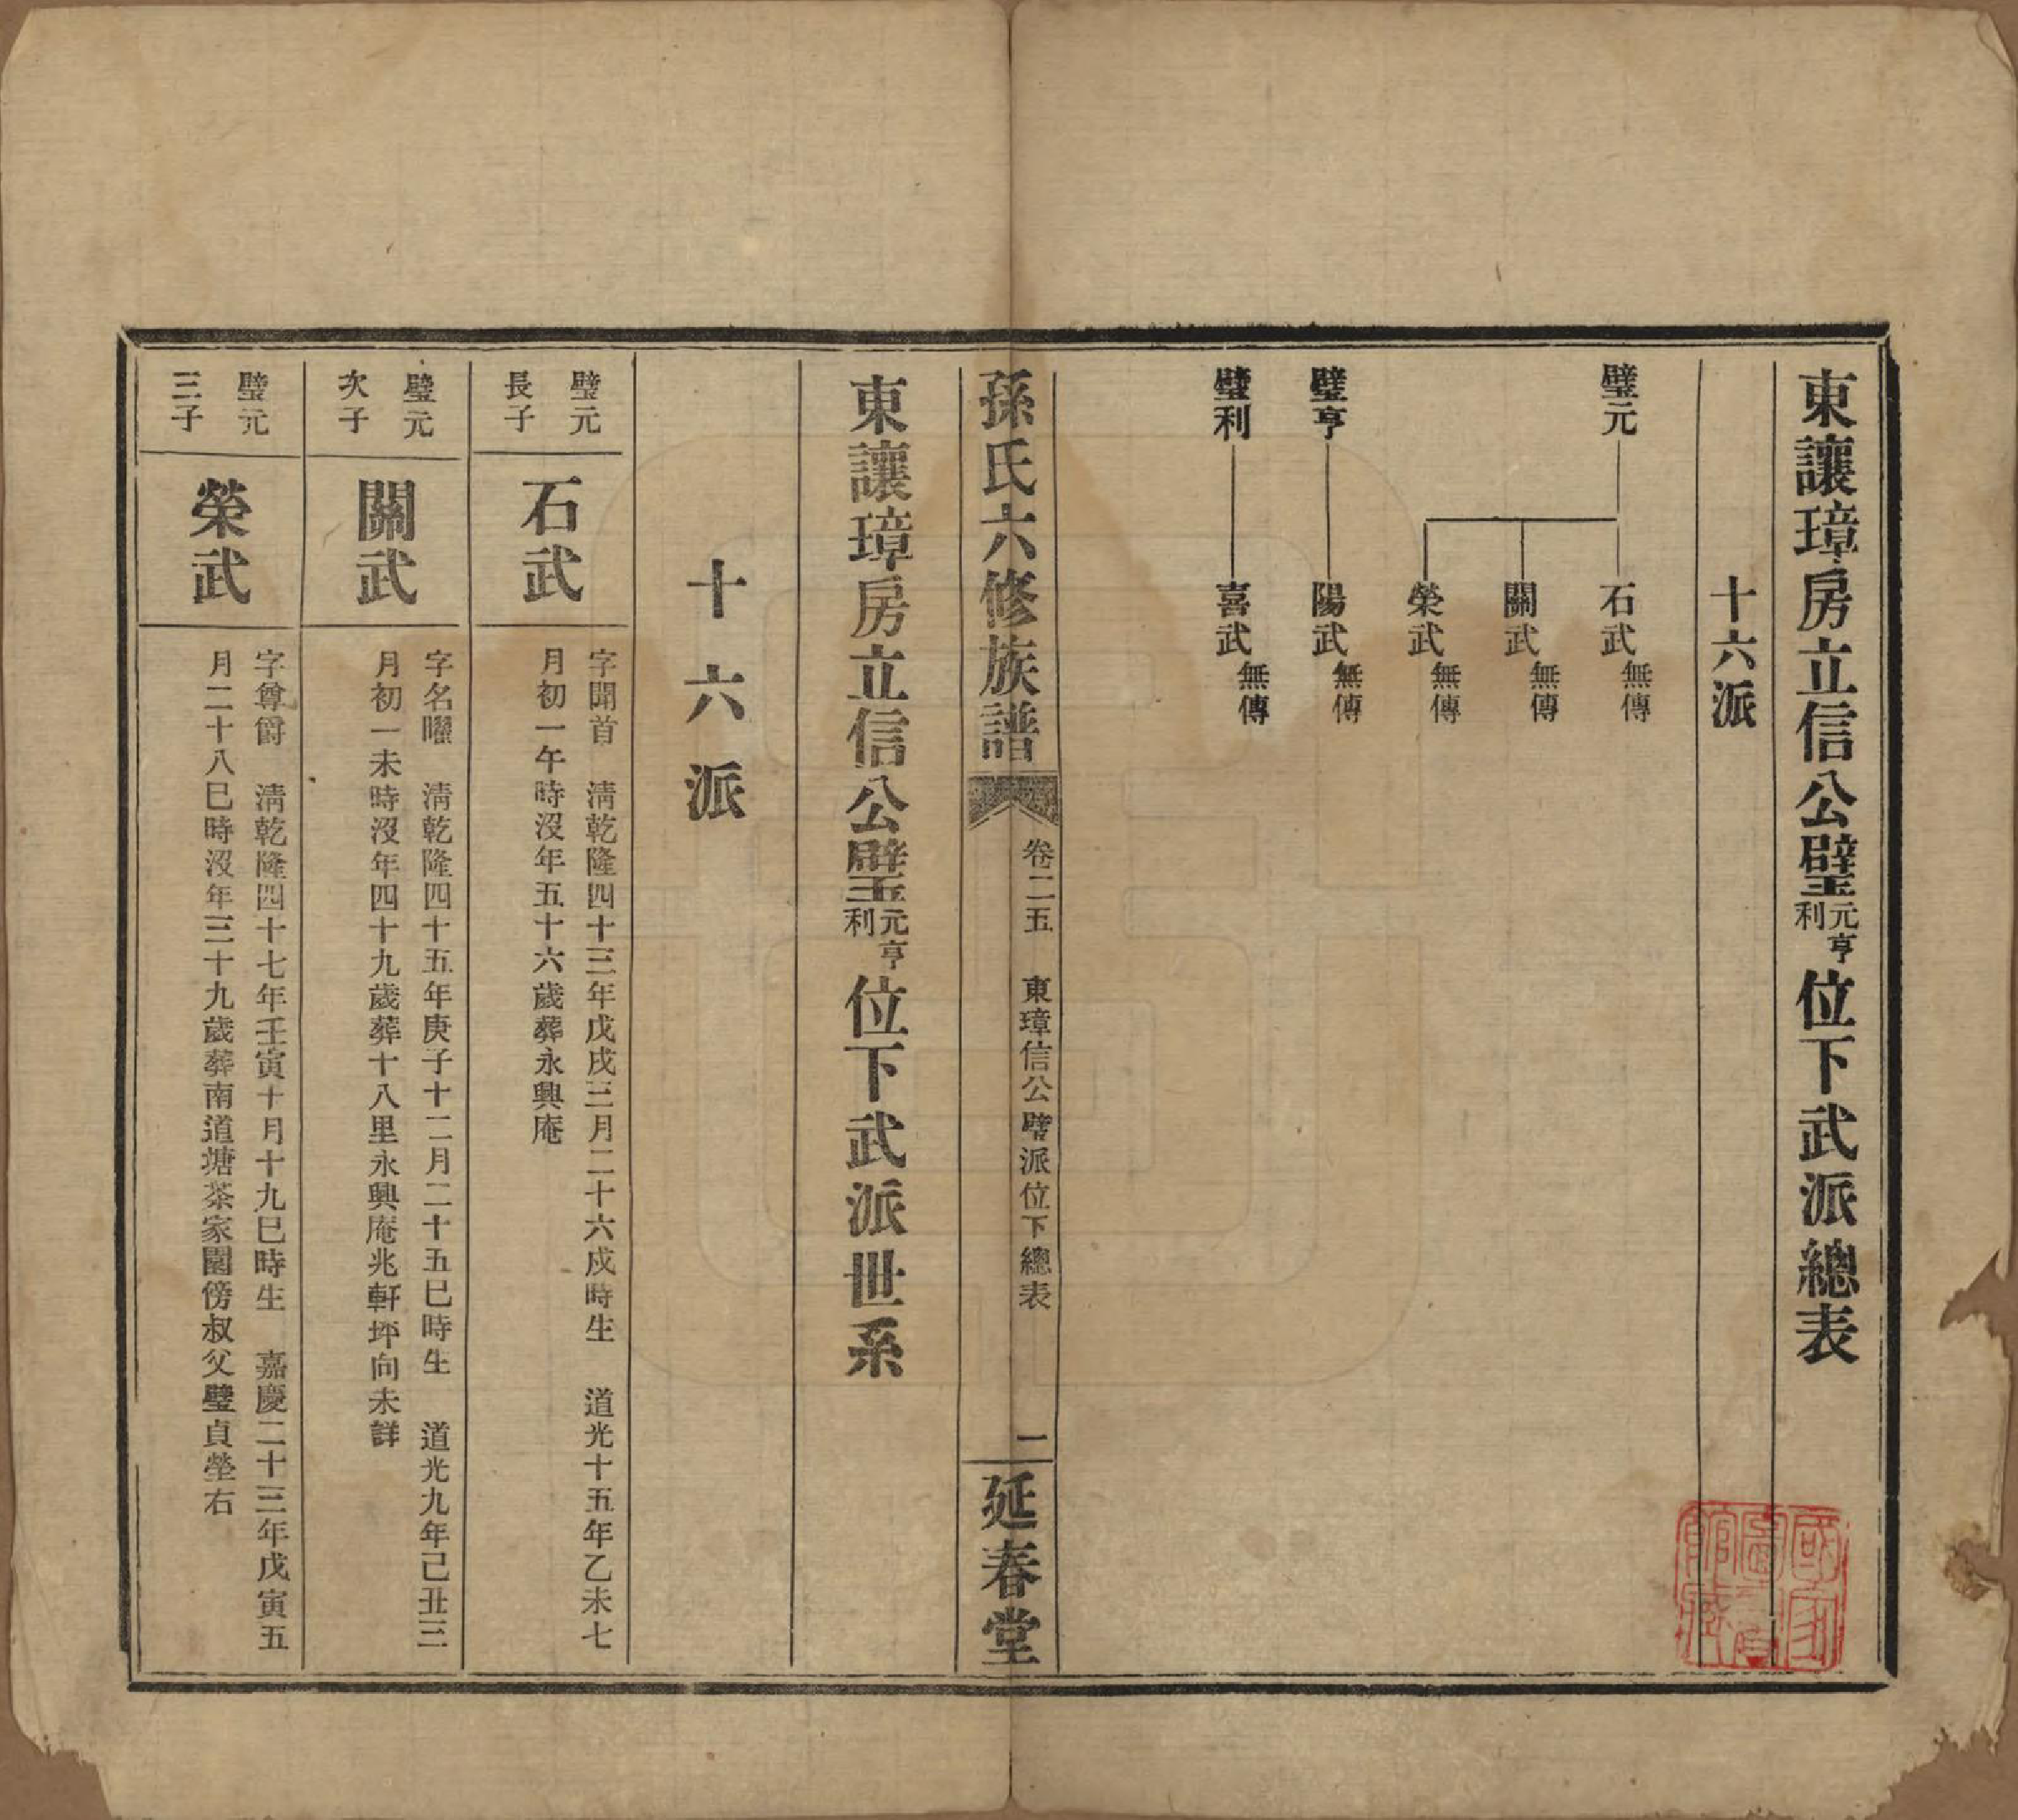 東讓璋房立信公璧元亨利位下武派總表
十六派
璧元
石武 無傳
關武 無傳
榮武 無傳
璧亨
陽武 無傳
璧利
喜武 無傳
孫氏六修族譜
卷二五 東璋信公璧派位下總表 一
延春堂
東讓璋房立信公璧元亨利位下武派世系
十六派
璧元
長子
石武
字聞首 清乾隆四十三年戊戌三月二十六戌時生 道光十五年乙未七
月初一午時沒年五十六歲葬永興庵
璧元
次子
關武
字名曜 清乾隆四十五年庚子十二月二十五巳時生 道光九年己丑三
月初一未時沒年四十九歲葬十八里永興庵兆軒坪向未詳
璧元
三子
榮武
字尊爵 清乾隆四十七年壬寅十月十九巳時生 嘉慶二十三年戊寅五
月二十八巳時沒年三十九歲葬南道塘茶家園傍叔父璧貞塋右
國家圖書館藏